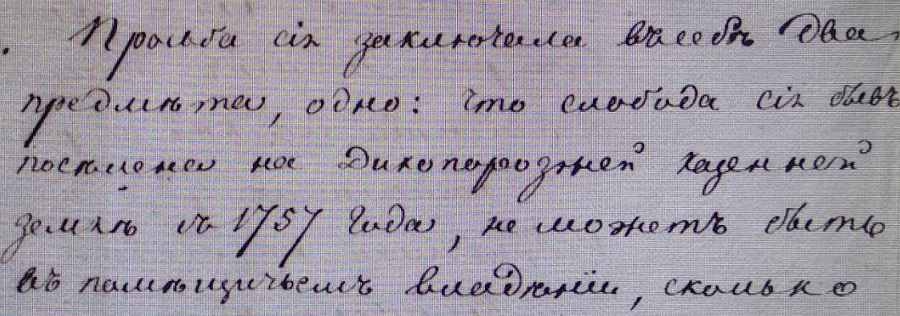 . Прозьба сія заключала въ себѣ два
предмѣта, одно: что слобода сія бывъ
поселена на дикопорозжей казенней
землѣ съ 1757 года, не можетъ быть
въ помѣщичьемъ владѣніи, сколько